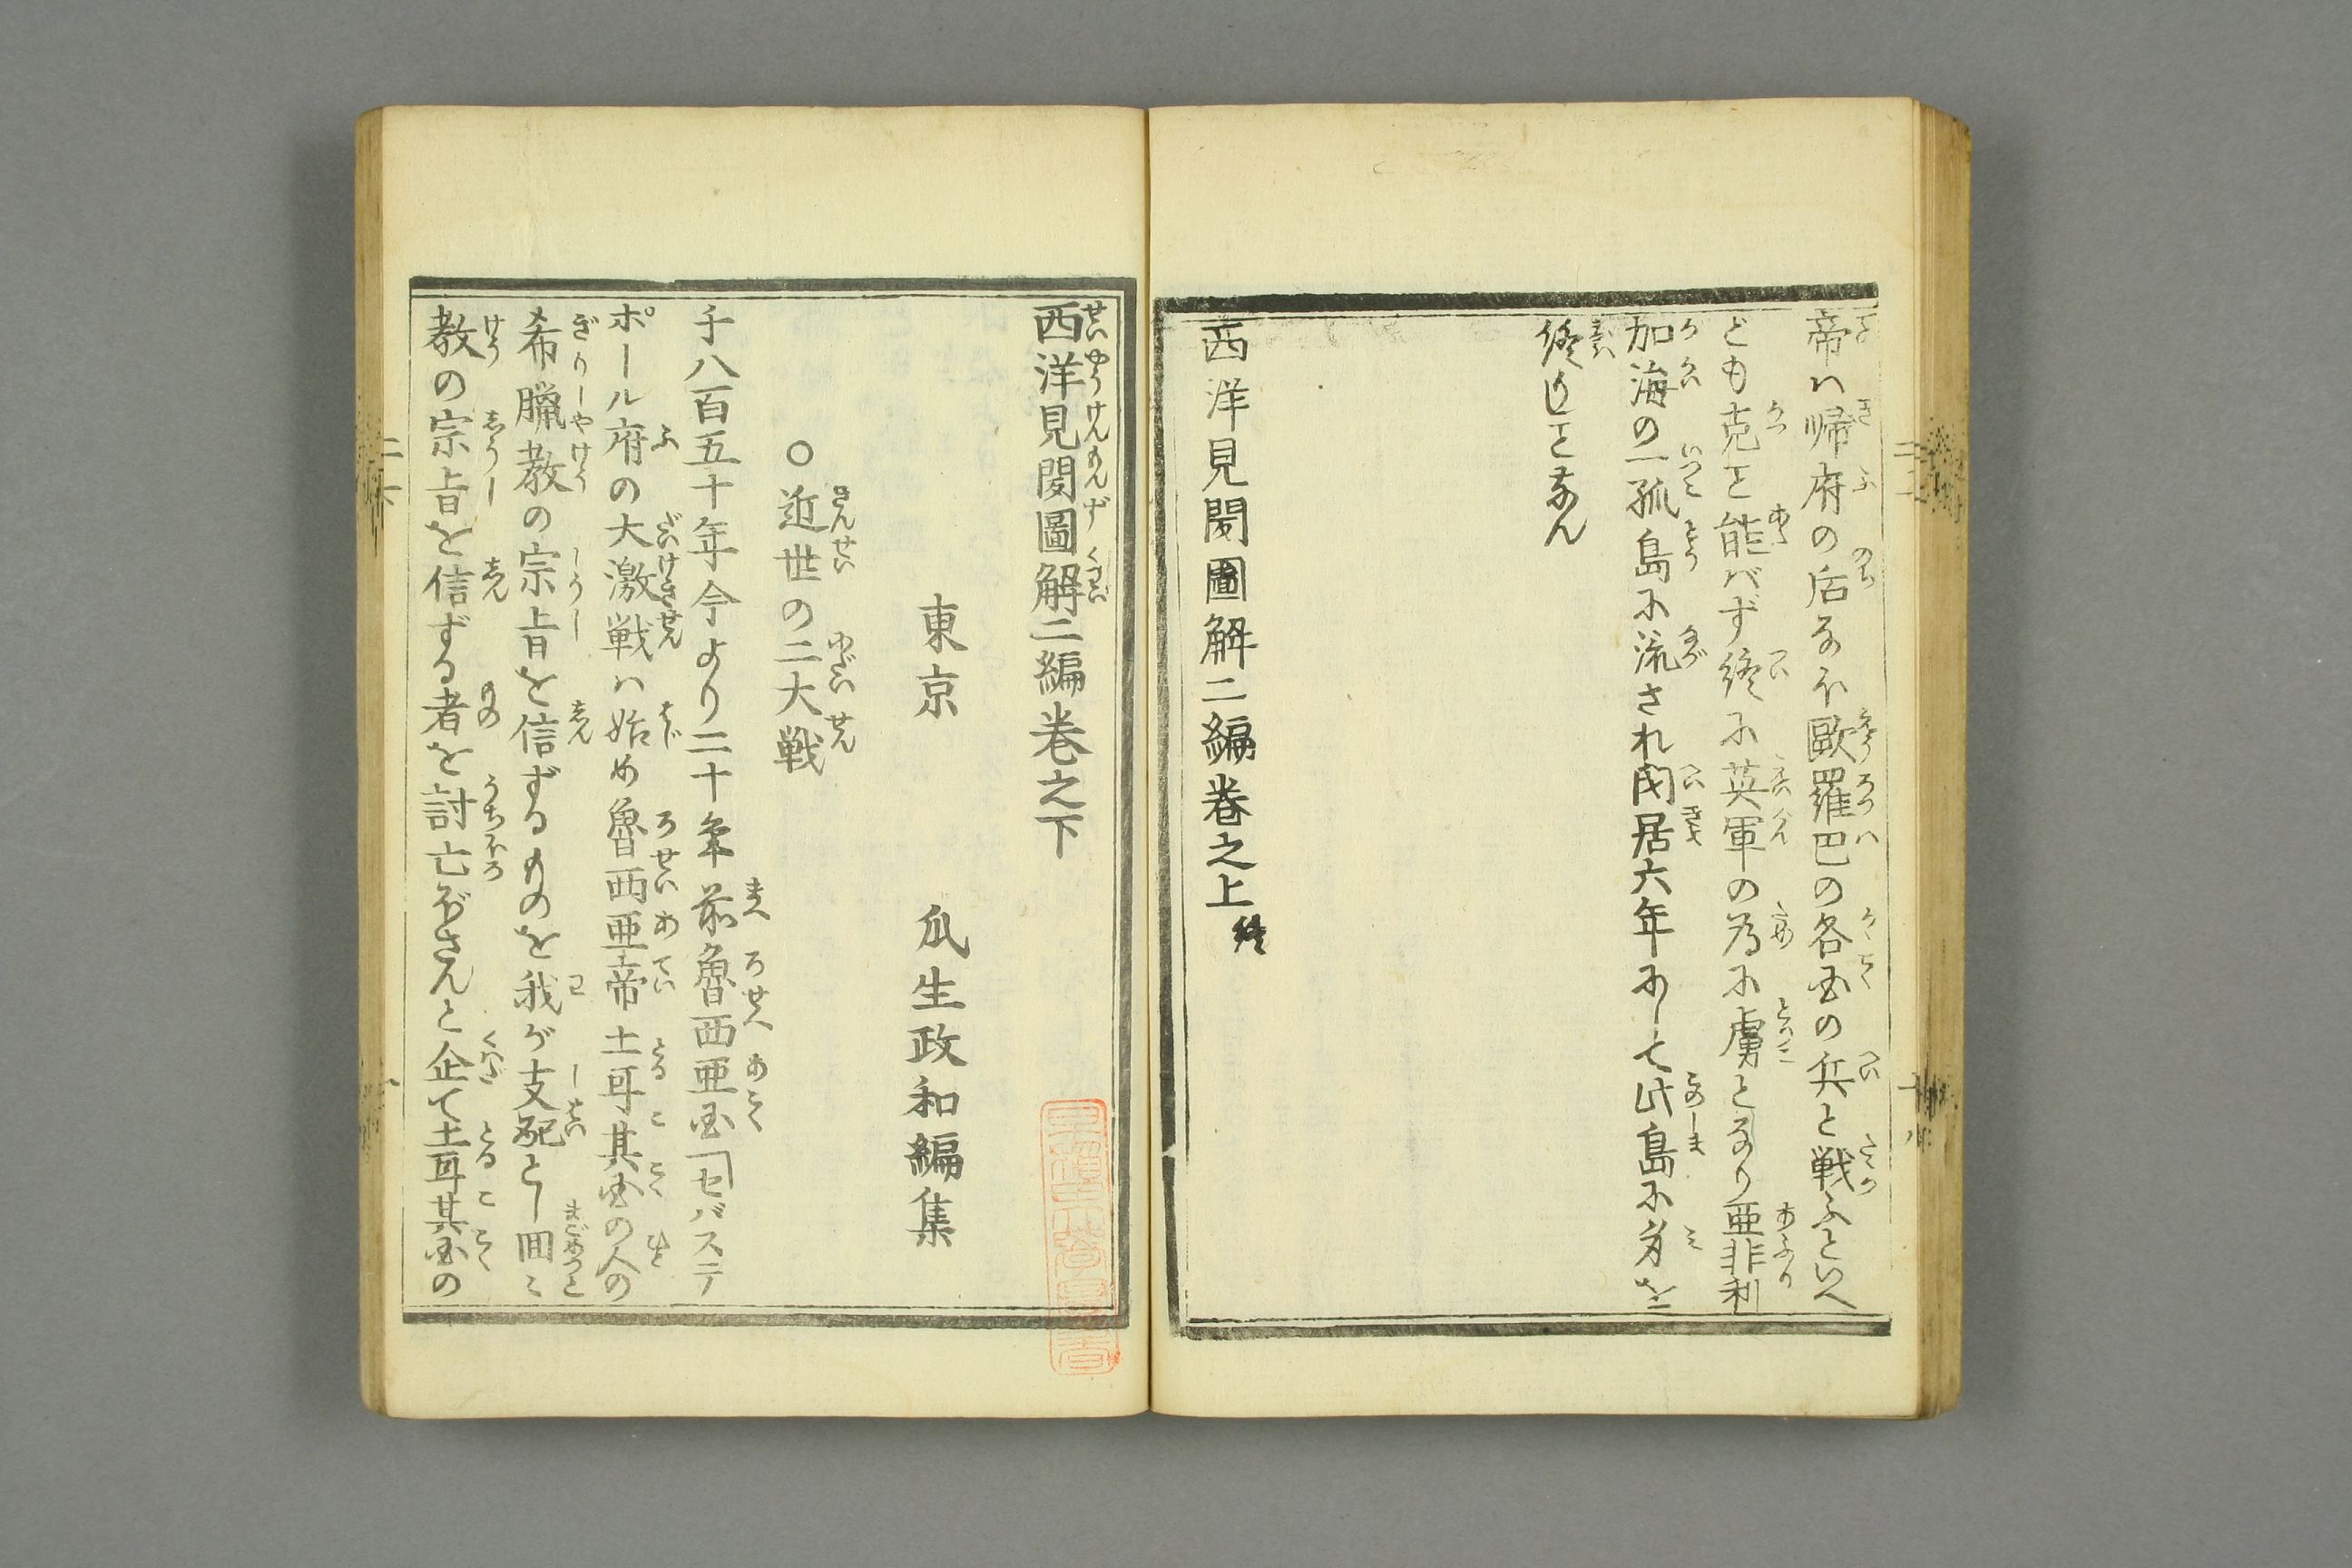 帝ハ帰府の后なほ歐羅巴の各国の兵と戦ふといへ
ども克こと能バず終に英軍の為に虜となり亜非利
加海の一孤島に流され閉居六年にして此島に身を
終りしとなん
西洋見聞圖解二編巻之上終
西洋見聞圖解二編巻之下
東京 瓜生政和編集
○近世の二大戦
千八百五十年今より二十年前魯西亜国「セバステ
ポール府の大激戦ハ始め魯西亜帝土耳其国の人の
希臘教の宗旨を信ずるものを我が支配とし回〻
教の宗旨を信ずる者を討亡ぼさんと企て土耳其国の